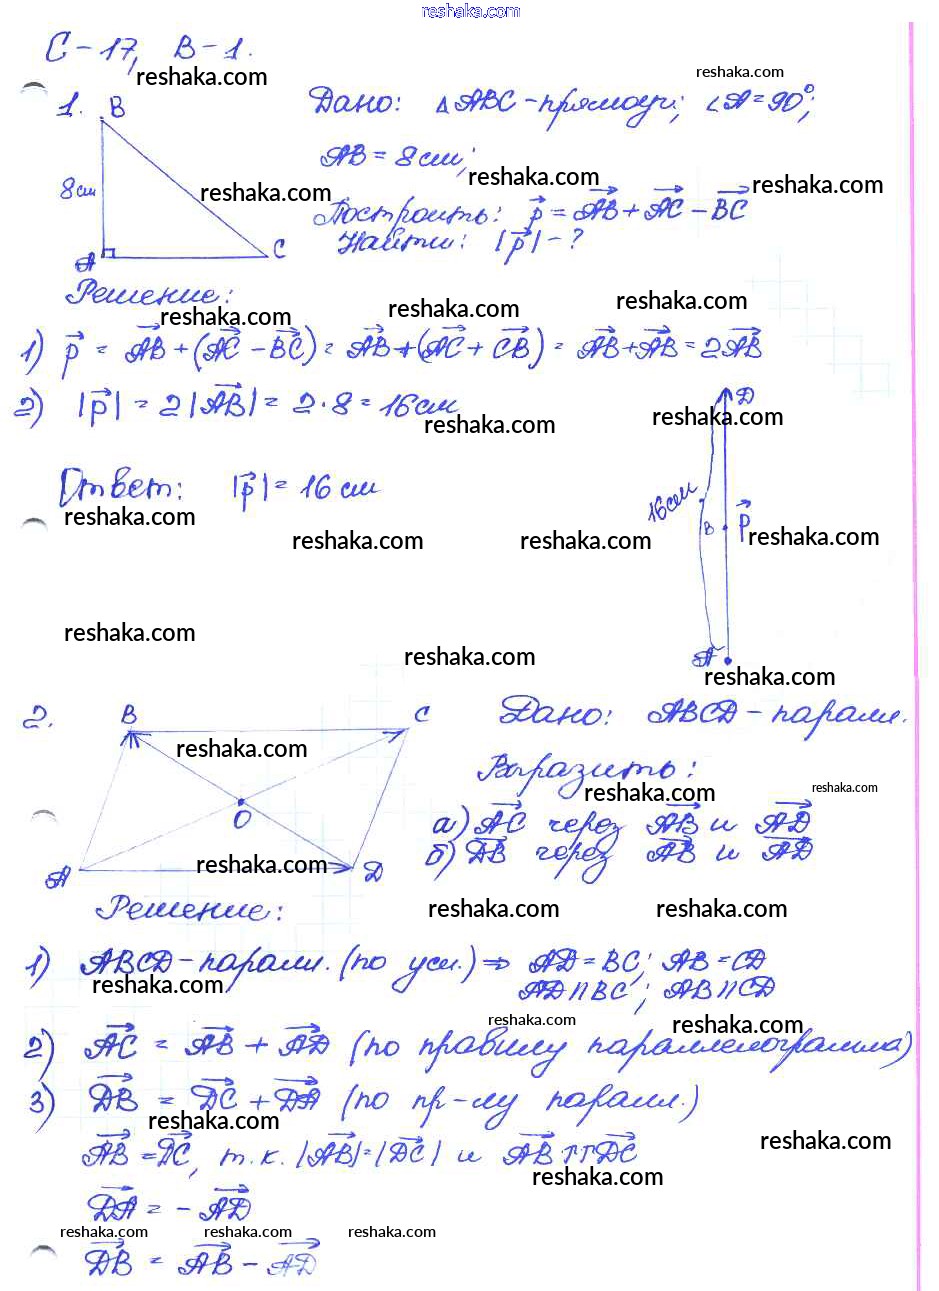 reshaka.com
С-17, В-1.
reshaka.com reshaka.com
1. B Дано: △ABC-прямоуг; ∠A=90°;
AB = 8 см;
8 см reshaka.com reshaka.com reshaka.com
Построить: p⃗ = AB⃗ + AC⃗ − BC⃗
A C Найти: |p⃗| - ?
Решение:
reshaka.com reshaka.com reshaka.com
1) p⃗ = AB⃗ + (AC⃗ − BC⃗) = AB⃗ + (AC⃗ + CB⃗) = AB⃗ + AB⃗ = 2AB⃗
2) |p⃗| = 2|AB⃗| = 2·8 = 16 см
D
reshaka.com reshaka.com
Ответ: |p⃗| = 16 см
16 см
B p⃗
reshaka.com reshaka.com reshaka.com reshaka.com
reshaka.com reshaka.com
A reshaka.com
2. B C Дано: ABCD - паралл.
reshaka.com
Выразить:
reshaka.com reshaka.com
O а) AC⃗ через AB⃗ и AD⃗
б) DB⃗ через AB⃗ и AD⃗
reshaka.com
A D
Решение: reshaka.com reshaka.com
1) ABCD - паралл. (по усл.) ⇒ AD = BC; AB = CD
reshaka.com AD || BC; AB || CD
reshaka.com reshaka.com
2) AC⃗ = AB⃗ + AD⃗ (по правилу параллелограмма)
3) DB⃗ = DC⃗ + DA⃗ (по пр-лу паралл.)
reshaka.com reshaka.com
AB⃗ = DC⃗, т.к. |AB⃗| = |DC⃗| и AB⃗ ↑↑ DC⃗
reshaka.com
DA⃗ = − AD⃗
reshaka.com reshaka.com reshaka.com
DB⃗ = AB⃗ − AD⃗